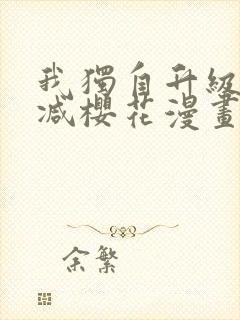 我獨自升級
減櫻花漫畫
余繁